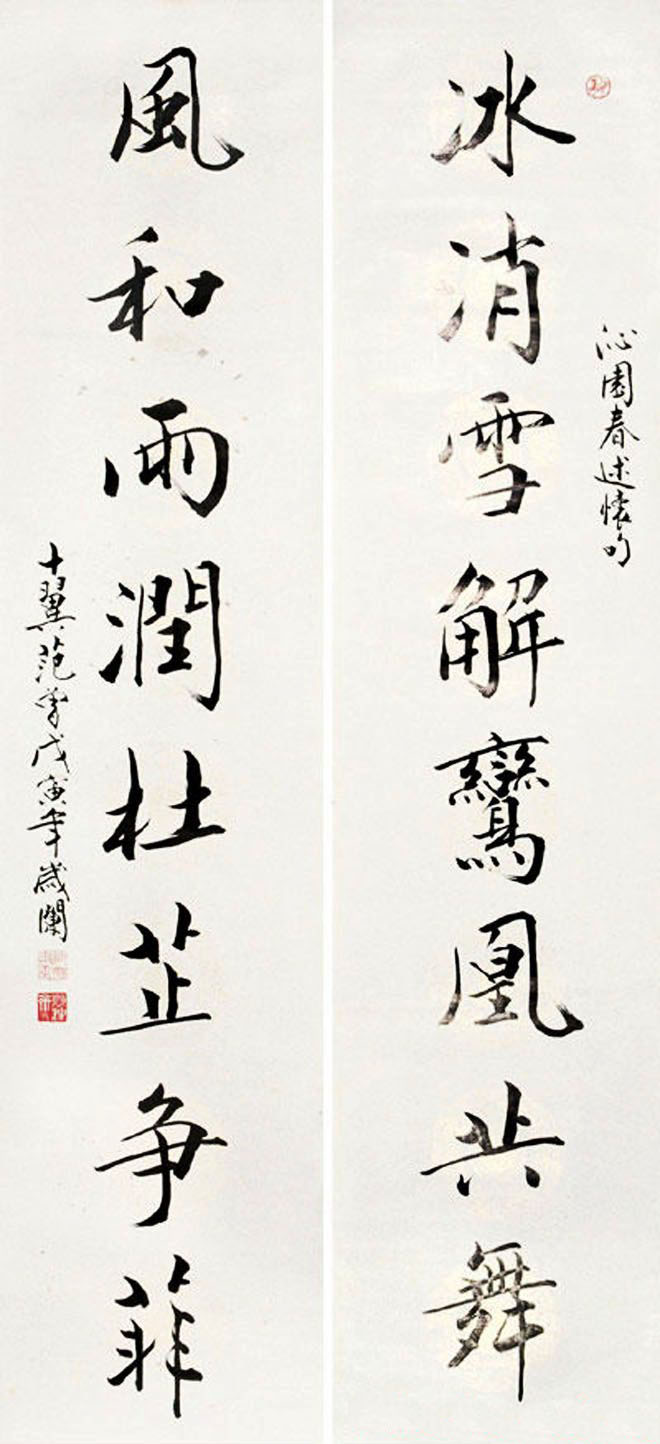 冰消雪解鸞凰共舞
沁園春述懷句
風和雨潤杜芷争菲
十翼范曾戊寅年歲闌